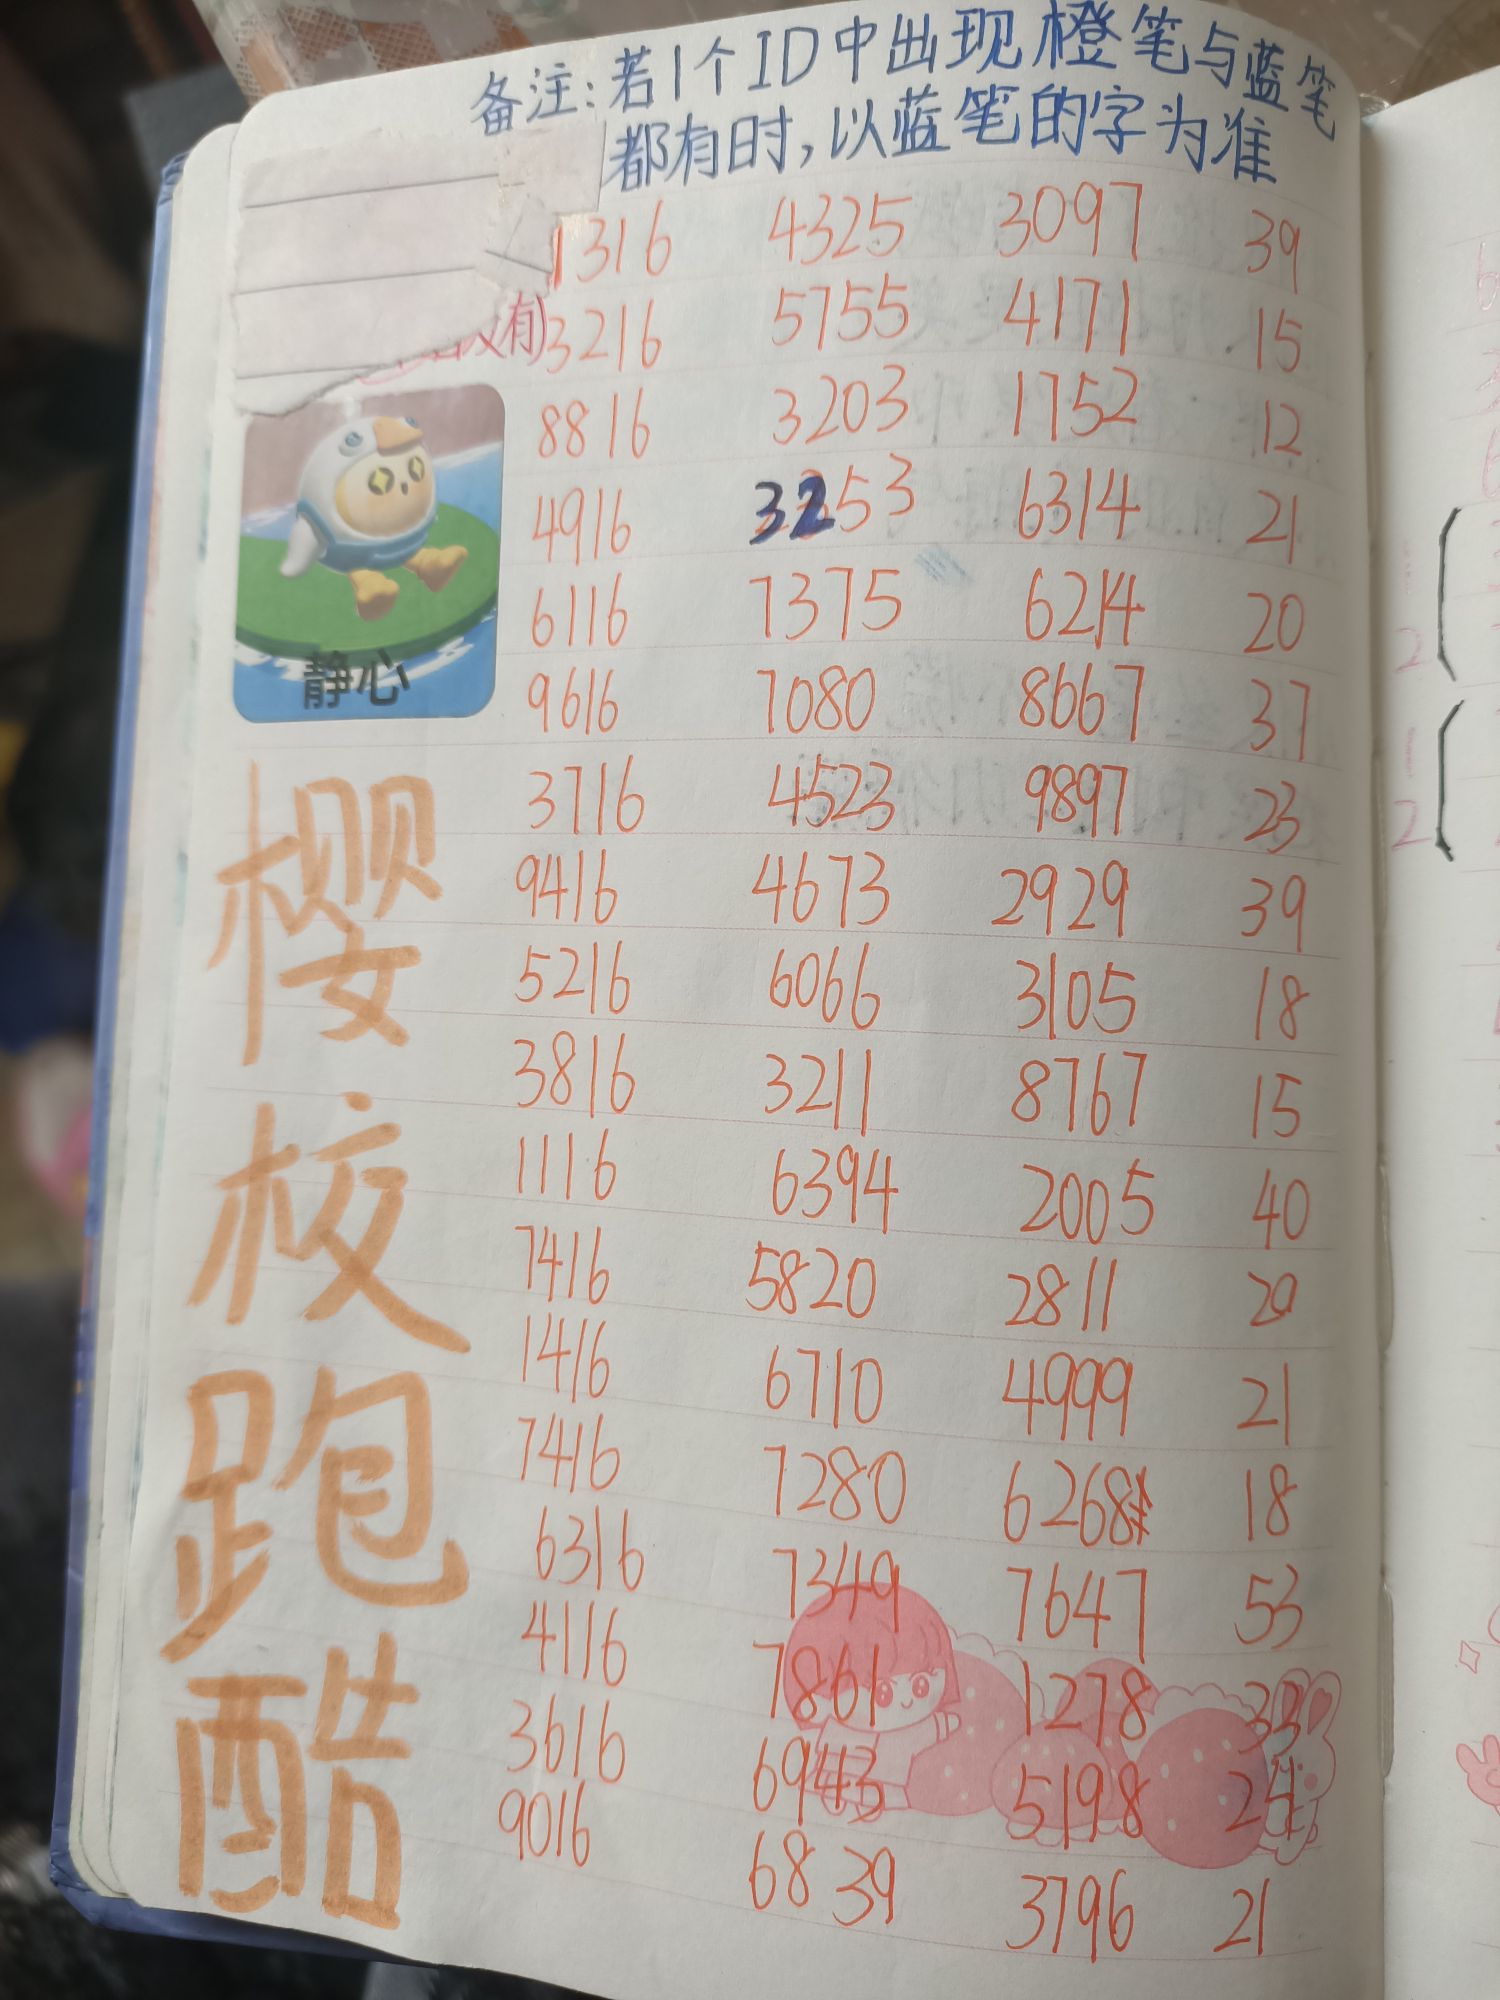 备注:若1个ID中出现橙笔与蓝笔
都有时,以蓝笔的字为准
1316 4325 3097 39
有) 3216 5755 4171 15
8816 3203 1752 12
4916 3253 6314 21
6116 7375 6214 20
9616 7080 8667 37
静心
3716 4523 9897 23
9416 4673 2929 39
5216 6066 3105 18
3816 3211 8767 15
1116 6394 2005 40
7416 5820 2811 20
1416 6710 4999 21
7416 7280 6268 18
6316 7349 7647 53
4116 7861 1278 33
3616 6943 5198 24
9016 6839 3796 21
樱校跑酷
2
2